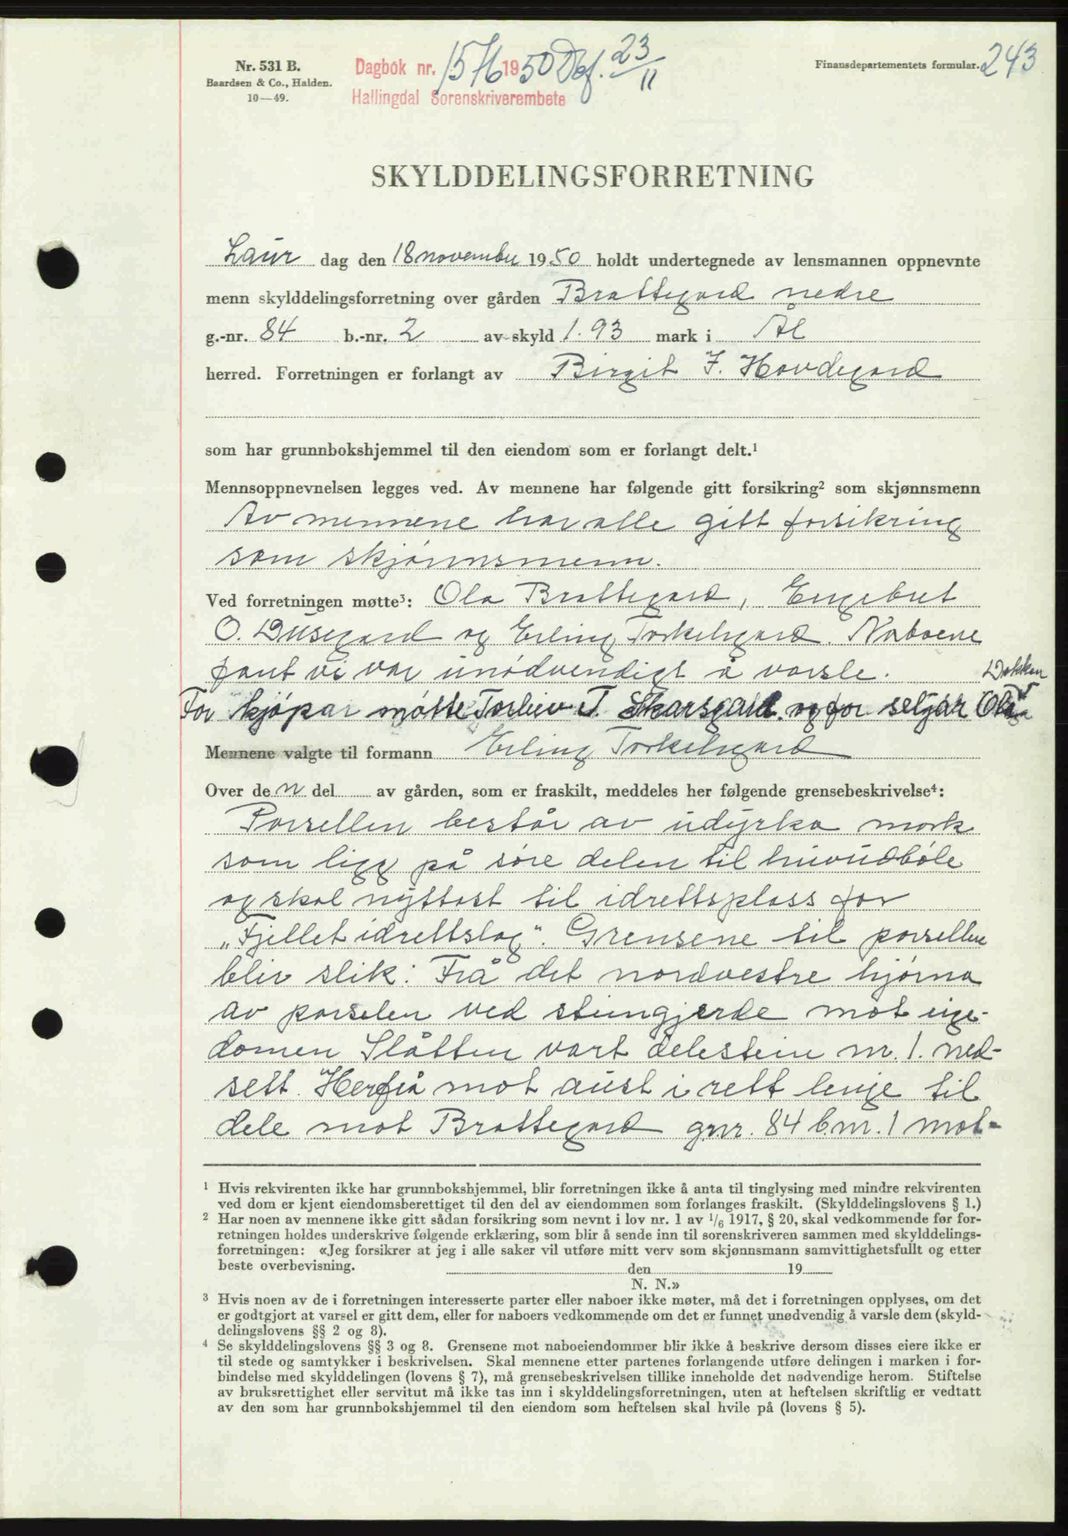 Nr. 531 B.
Baardsen & Co., Halden.
10—49.
Dagbok nr. 1576 1950 Def. 23/11
Hallingdal Sorenskriverembete
Finansdepartementets formular. 243
SKYLDDELINGSFORRETNING
Laur dag den 18 november 1950 holdt undertegnede av lensmannen oppnevnte
menn skylddelingsforretning over gården Brattegard nedre
g.-nr. 84 b.-nr. 2 av skyld 1.93 mark i Ål
herred. Forretningen er forlangt av Birgit F. Hovdegard
som har grunnbokshjemmel til den eiendom som er forlangt delt.¹
Mennsoppnevnelsen legges ved. Av mennene har følgende gitt forsikring² som skjønnsmenn
Av mennene har alle gitt forsikring
som skjønnsmenn.
Ved forretningen møtte³: Ola Brattegard, Engebret
O. Dusegard og Erling Torkelsgard. Naboene
fant vi var unødvendigt å varsle. Dokken
For kjøpar møtte Torleiv T. Skarsgard, og for seljar Ola
Mennene valgte til formann Erling Torkelsgard
Over den del av gården, som er fraskilt, meddeles her følgende grensebeskrivelse⁴:
Parsellen består av udyrka mark
som ligg på søre delen til huvudbøle
og skal nyttast til idrettsplass for
„Fjellet idrettslag". Grensene til parsellen
blir slik: Frå det nordvestre hjørna
av parselen ved steingjerde mot eige-
domen Slåtten vart delestein nr. 1. ned-
sett. Herfrå mot aust i rett lenje til
dele mot Brattegard gnr. 84 bnr. 1 mot-
¹ Hvis rekvirenten ikke har grunnbokshjemmel, blir forretningen ikke å anta til tinglysing med mindre rekvirenten
ved dom er kjent eiendomsberettiget til den del av eiendommen som forlanges fraskilt. (Skylddelingslovens § 1.)
² Har noen av mennene ikke gitt sådan forsikring som nevnt i lov nr. 1 av 1/6 1917, § 20, skal vedkommende før for-
retningen holdes underskrive følgende erklæring, som blir å sende inn til sorenskriveren sammen med skylddelings-
forretningen: «Jeg forsikrer at jeg i alle saker vil utføre mitt verv som skjønnsmann samvittighetsfullt og etter
beste overbevisning. den 19
N. N.»
³ Hvis noen av de i forretningen interesserte parter eller naboer ikke møter, må det i forretningen opplyses, om det
er godtgjort at varsel er gitt dem, eller for naboers vedkommende om det er funnet unødvendig å varsle dem (skyld-
delingslovens §§ 2 og 8).
⁴ Se skylddelingslovens §§ 3 og 8. Grensene mot naboeiendommer blir ikke å beskrive dersom disses eiere ikke er
til stede og samtykker i beskrivelsen. Skal mennene etter partenes forlangende utføre delingen i marken i for-
bindelse med skylddelingen (lovens § 7), må grensebeskrivelsen tillike inneholde det nødvendige herom. Stiftelse
av bruksrettighet eller servitut må ikke tas inn i skylddelingsforretningen, uten at heftelsen skriftlig er vedtatt
av den som har grunnbokshjemmel til den eiendom som heftelsen skal hvile på (lovens § 5).